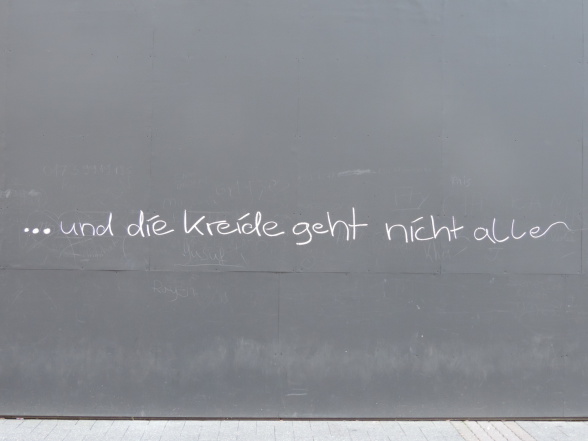 ... und die Kreide geht nicht alle